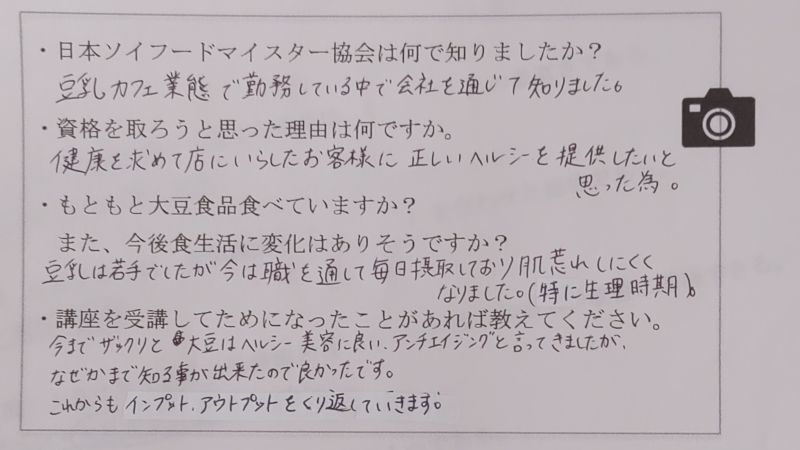 ・日本ソイフードマイスター協会は何で知りましたか？
豆乳カフェ業態で勤務している中で会社を通じて知りました。
・資格を取ろうと思った理由は何ですか。
健康を求めて店にいらしたお客様に正しいヘルシーを提供したいと
思った為。
・もともと大豆食品食べていますか？
また、今後食生活に変化はありそうですか？
豆乳は苦手でしたが今は職を通して毎日摂取しており肌荒れしにくく
なりました。(特に生理時期)。
・講座を受講してためになったことがあれば教えてください。
今までザックリと大豆はヘルシー美容に良い、アンチエイジングと言ってきましたが、
なぜかまで知る事が出来たので良かったです。
これからもインプット、アウトプットをくり返していきます。